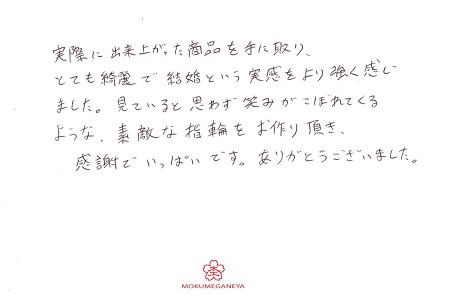 実際に出来上がった商品を手に取り、
とても綺麗で結婚という実感をより強く感じ
ました。見ていると思わず笑みがこぼれてくる
ような、素敵な指輪をお作り頂き、
感謝でいっぱいです。ありがとうございました。
MOKUMEGANEYA